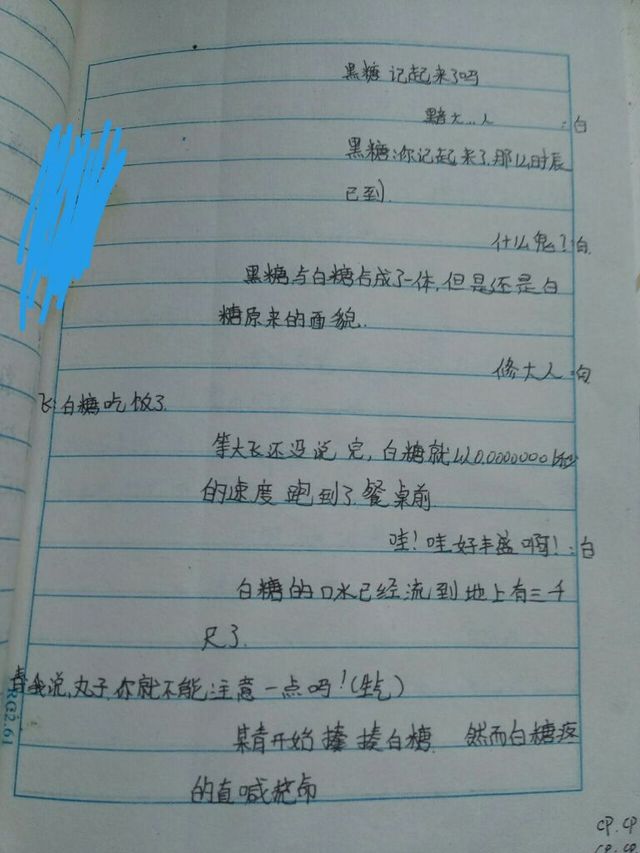 黑糖 记起来了吗
黯大..人 :白
黑糖:你记起来了,那么时辰
已到.
什么鬼? 白
黑糖与白糖占成了一体,但是还是白
糖原来的面貌.
修大人:白
飞:白糖吃饭了
等大飞还没说完,白糖就以0.0000000 1秒
的速度跑到了餐桌前
哇!哇好丰盛啊!:白
白糖的口水已经流到地上有三千
尺了.
青我说,丸子,你就不能注意一点吗!(生气)
某青开始揍揍白糖 然而白糖疼
的直喊
RG2.61
CP.CP
CP.CP